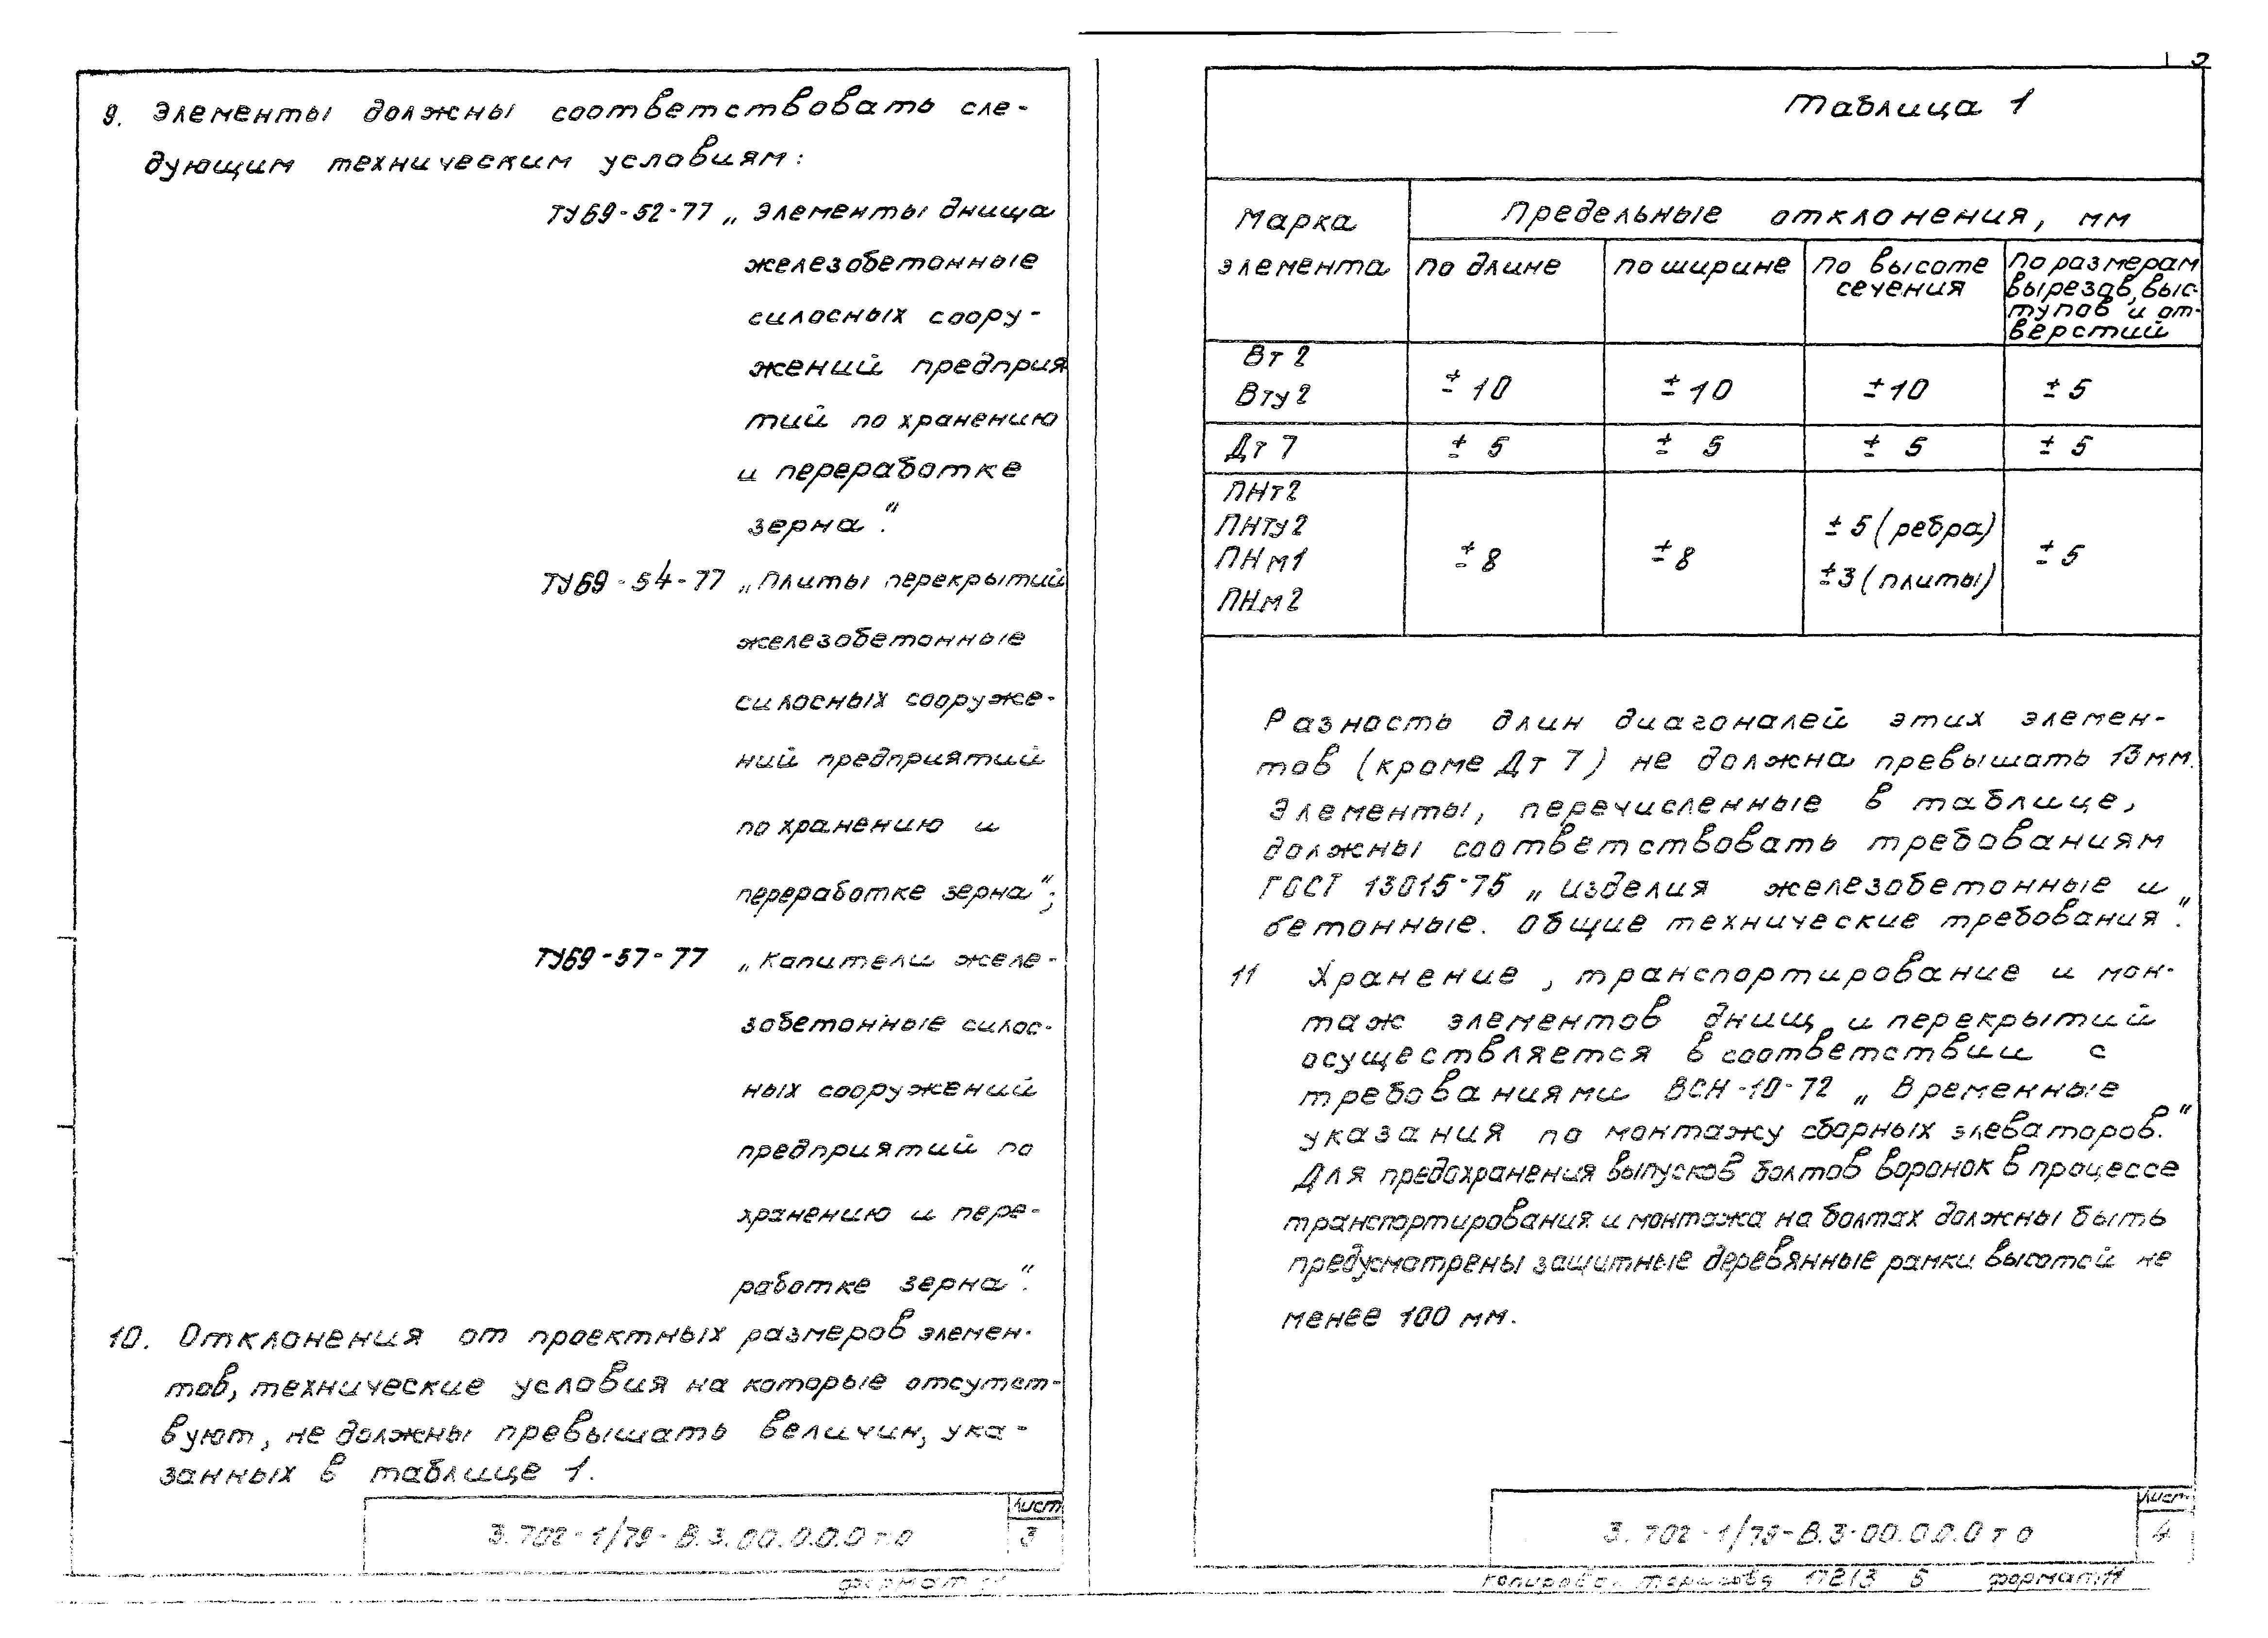 9. Элементы должны соответствовать сле-
дующим техническим условиям:
ТУ69-52-77 „Элементы днища
железобетонные
силосных соору-
жений предприя
тий по хранению
и переработке
зерна".
ТУ69-54-77 „Плиты перекрытий
железобетонные
силосных сооруже-
ний предприятий
по хранению и
переработке зерна";
ТУ69-57-77 „Капители желе-
зобетонные силос-
ных сооружений
предприятий по
хранению и пере-
работке зерна".
10. Отклонения от проектных размеров элемен-
тов, технические условия на которые отсутст-
вуют, не должны превышать величин, ука-
занных в таблице 1.
3.702-1/79-В.3.00.0.0.0 то
Лист
3
формат 11
Таблица 1
Марка элемента
Предельные отклонения, мм
по длине
по ширине
по высоте
сечения
по размерам
вырезов, выс-
тупов и от-
верстий
Вт 2
Вту 2
± 10 ± 10 ± 10 ± 5
Дт 7 ± 5 ± 5 ± 5 ± 5
ПНт2
ПНту2
ПНм1
ПНм2
± 8 ± 8
± 5 (ребра)
± 3 (плиты)
± 5
Разность длин диагоналей этих элемен-
тов (кроме Дт 7) не должна превышать 13 мм.
Элементы, перечисленные в таблице,
должны соответствовать требованиям
ГОСТ 13015-75 „Изделия железобетонные и
бетонные. Общие технические требования".
11 Хранение, транспортирование и мон-
таж элементов днищ и перекрытий
осуществляется в соответствии с
требованиями ВСН-10-72 „Временные
указания по монтажу сборных элеваторов."
Для предохранения выпусков болтов воронок в процессе
транспортирования и монтажа на болтах должны быть
предусмотрены защитные деревянные рамки высотой не
менее 100 мм.
3.702-1/79-В.3-00.0.0.0 то
Лист
4
Копировал 17213 5 формат 11